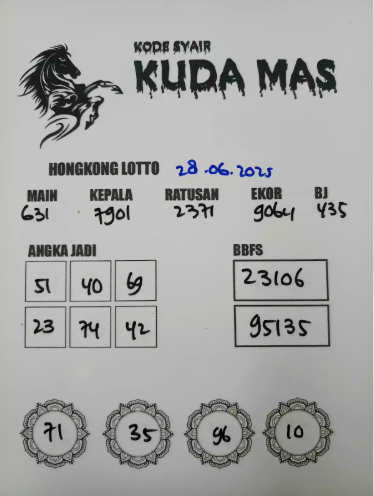 KODE SYAIR
KUDA MAS
HONGKONG LOTTO 28.06.2025
MAIN KEPALA RATUSAN EKOR BJ
631 7901 2371 9064 435
ANGKA JADI BBFS
51 40 69 23106
23 74 42 95135
71 35 96 10